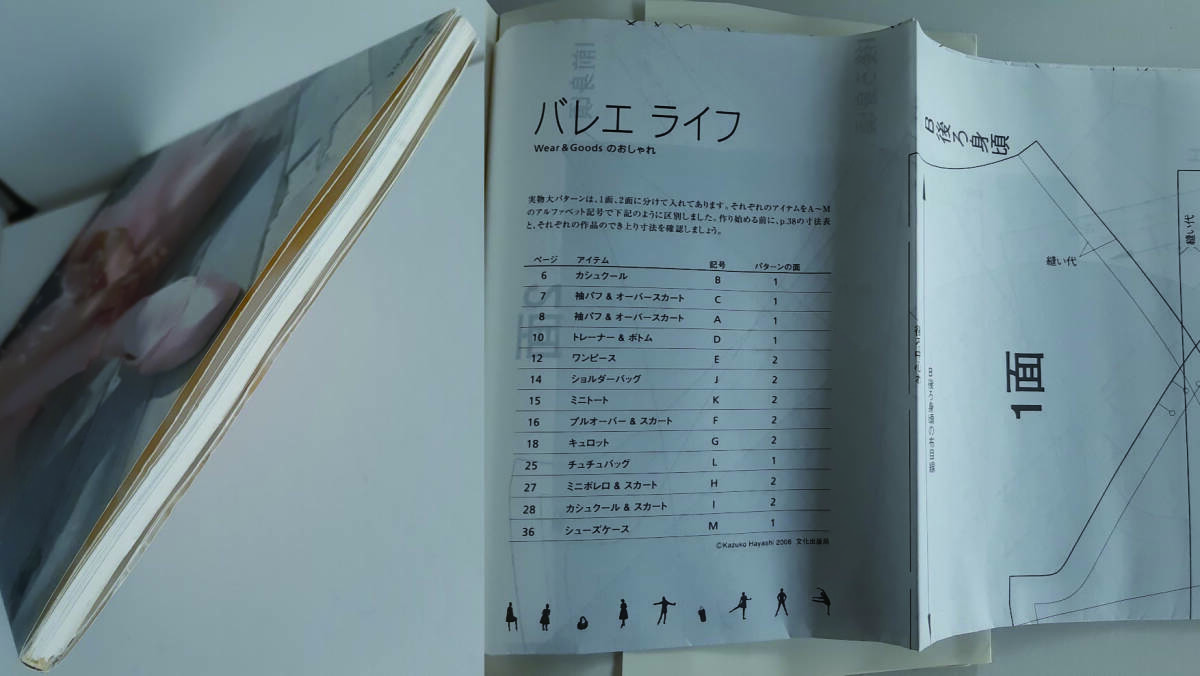 バレエ ライフ
Wear & Goods のおしゃれ
実物大パターンは、1面、2面に分けて入れてあります。それぞれのアイテムをA〜M
のアルファベット記号で下記のように区別しました。作り始める前に、p.38の寸法表
と、それぞれの作品のでき上り寸法を確認しましょう。
ページ アイテム 記号 パターンの面
6 カシュクール B 1
7 袖パフ & オーバースカート C 1
8 袖パフ & オーバースカート A 1
10 トレーナー & ボトム D 1
12 ワンピース E 2
14 ショルダーバッグ J 2
15 ミニトート K 2
16 プルオーバー & スカート F 2
18 キュロット G 2
25 チュチュバッグ L 1
27 ミニボレロ & スカート H 2
28 カシュクール & スカート I 2
36 シューズケース M 1
©Kazuko Hayashi 2008 文化出版局
B後ろ身頃
縫い代
縫い代
1面
B後ろ身頃の布目線